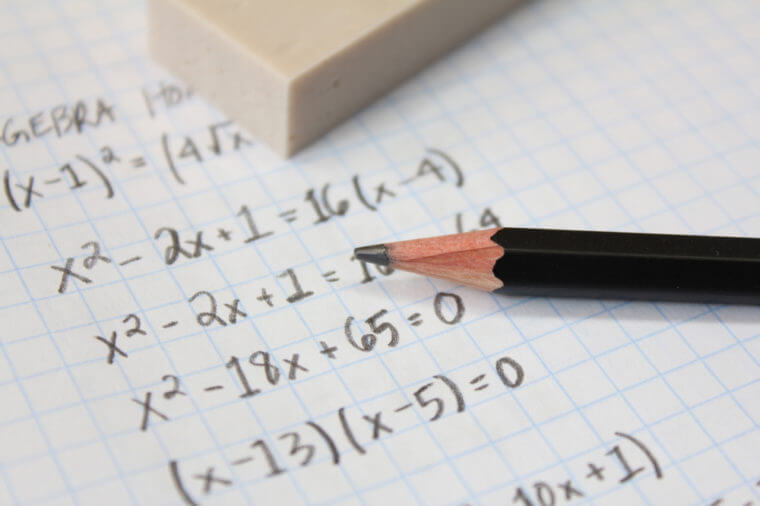 GEBRA HO
(x-1)² = (4√x
x² - 2x + 1 = 16(x-4)
x² - 2x + 1 = 1 (4
x² - 18x + 65 = 0
(x-13)(x-5) = 0
10x + 1)